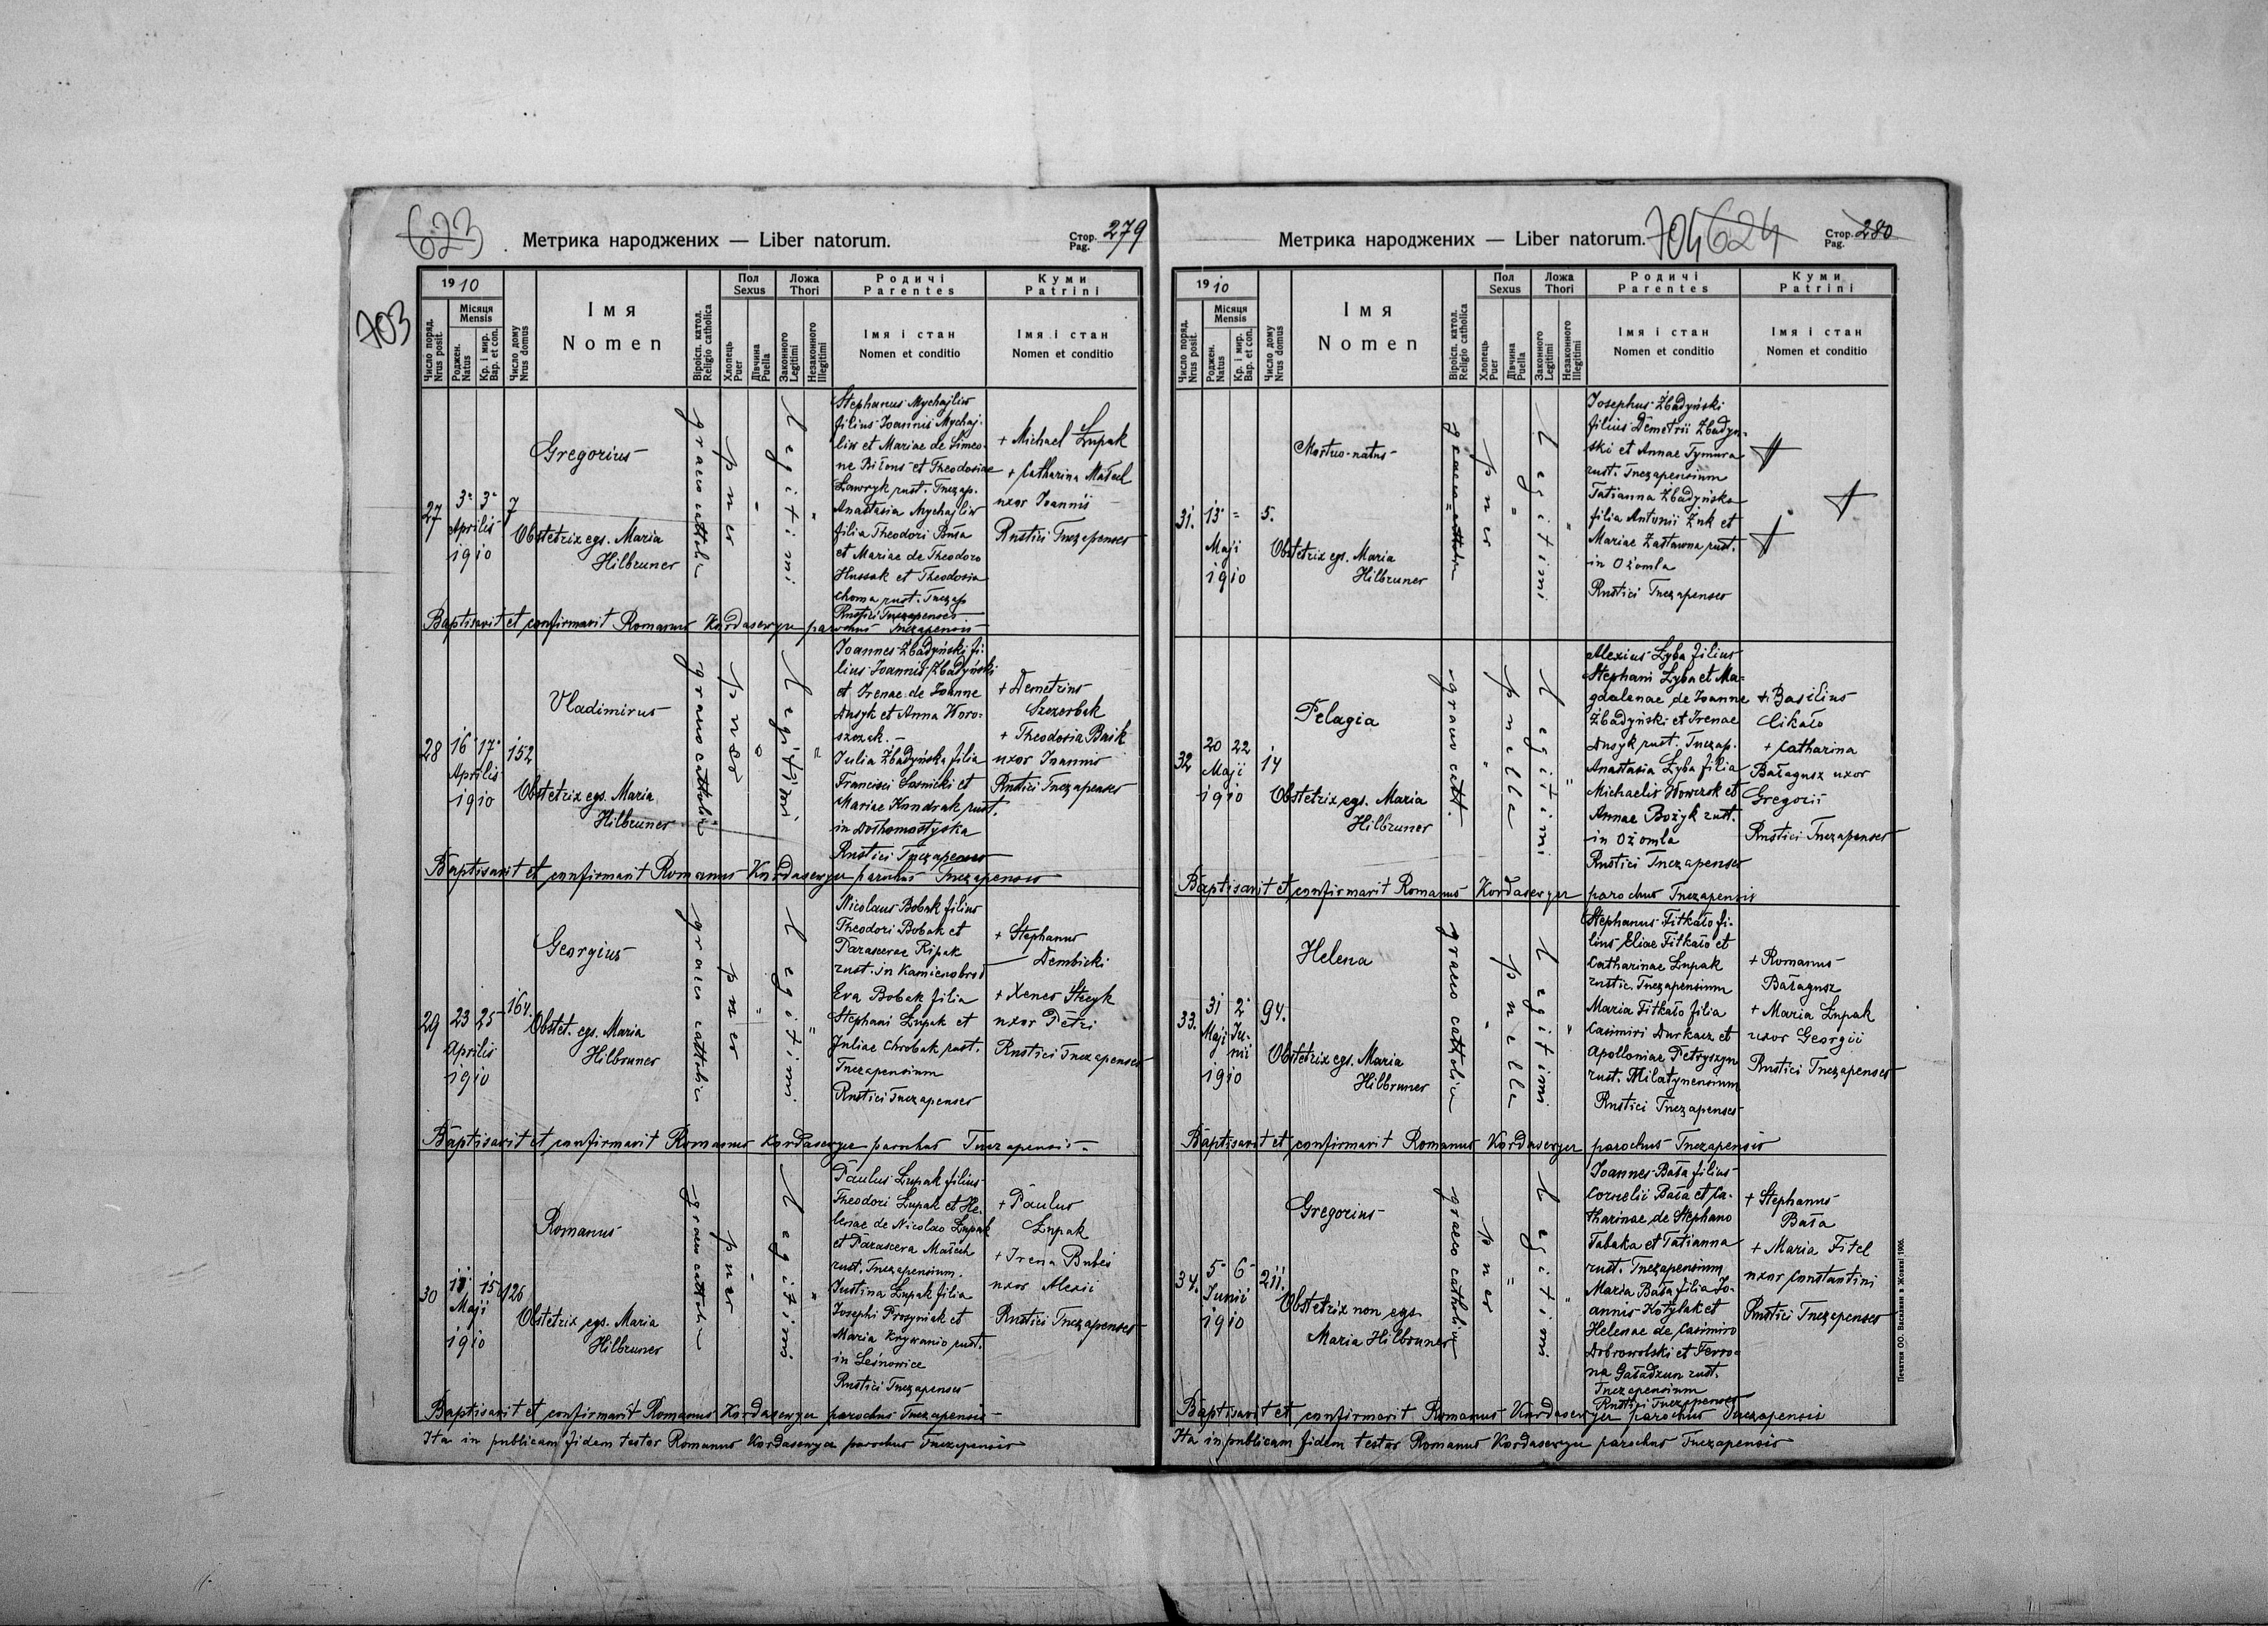 623
Метрика народжених — Liber natorum.
Стор. Pag. 279
703
1910
Число поряд. Nrus posit.
Місяця Mensis
Роджен. Natus
Кр. і мир. Bap. et con.
Число дому Nrus domus
Імя
Nomen
Віроісп. катол. Religio catholica
Пол Sexus
Хлопець Puer
Дівчина Puella
Ложа Thori
Законного Legitimi
Незаконного Illegitimi
Родичі
Parentes
Імя і стан
Nomen et conditio
Куми
Patrini
Імя і стан
Nomen et conditio
27
3 3
Aprilis
1910
7
Gregorius
Obstetrix egs. Maria
Hilbruner
graeco catholic
puer
Legitimi
Stephanus Mychajliw
filius Joannis Mychaj-
liw et Mariae de Simeo-
ne et Theodosiae
Ławryk rust. Tuczap.
Anastasia Mychajliw
filia Theodori
et Mariae de Theodoro
Hussak et Theodosia
Choma rust. Tuczap
Rustici Tuczapenses
+ Michael Łupak
+ Catharina
uxor Joannis
Rustici Tuczapenses
Baptisavit et confirmavit Romanus Kordasewycz parochus Tuczapensis
28
16 17
Aprilis
1910
152
Vladimirus
Obstetrix egs. Maria
Hilbruner
graeco catholic
puer
Legitimi
Joannes Zbadyński fi-
lius Joannis Zbadyński
et Irenae de Joanne
Dusyk et Anna Woro-
szczak.
Julia Zbadyńska filia
Francisci Sosnicki et
Mariae Kundrak rust.
in Dothomostyska
Rustici Tuczapenses
+ Demetrius
Szczerbak
+ Theodosia Buik
uxor Joannis
Rustici Tuczapenses
Baptisavit et confirmavit Romanus Kordasewycz parochus Tuczapensis
29
23 25
Aprilis
1910
164.
Georgius
Obstet. egs. Maria
Hilbruner
graeco catholic
puer
Legitimi
Nicolaus Bobak filius
Theodori Bobak et
Parascevae Ripak
rust. in Kamienobrod
Eva Bobak filia
Stephani Łupak et
Juliae Chrobak rust.
Tuczapensium
Rustici Tuczapenses
+ Stephanus
Dembicki
+ Xenes Stecyk
uxor Petri
Rustici Tuczapenses
Baptisavit et confirmavit Romanus Kordasewycz parochus Tuczapensis
30
11 15
Maji
1910
126
Romanus
Obstetrix egs. Maria
Hilbruner
graeco catholic
puer
Legitimi
Paulus Łupak filius
Theodori Łupak et He-
lenae de Nicolao Łupak
et Parasceva
rust. Tuczapensium.
Justina Łupak filia
Josephi Prosyniak et
Maria Krywanio rust.
in Leśnowice
Rustici Tuczapenses
+ Paulus
Łupak
+ Irena Bubes
uxor Alexii
Rustici Tuczapenses
Baptisavit et confirmavit Romanus Kordasewycz parochus Tuczapensis
Ita in publicam fidem testor Romanus Kordasewycz parochus Tuczapensis
Метрика народжених — Liber natorum.
704 624
Стор. Pag. 280
1910
Число поряд. Nrus posit.
Місяця Mensis
Роджен. Natus
Кр. і мир. Bap. et con.
Число дому Nrus domus
Імя
Nomen
Віроісп. катол. Religio catholica
Пол Sexus
Хлопець Puer
Дівчина Puella
Ложа Thori
Законного Legitimi
Незаконного Illegitimi
Родичі
Parentes
Імя і стан
Nomen et conditio
Куми
Patrini
Імя і стан
Nomen et conditio
31.
13 =
Maji
1910
5.
Mortuo-natus
Obstetrix egs. Maria
Hilbruner
graeco catholic
puer
Legitimi
Josephus Zbadyński
filius Demetrii Zbadyn-
ski et Annae Tymura
rust. Tuczapensium
Tatianna Zbadyńska
filia Antonii Żuk et
Mariae Zastawna rust.
in Ożomla
Rustici Tuczapenses
32
20 22
Maji
1910
14
Pelagia
Obstetrix egs. Maria
Hilbruner
graeco cath.
puella
Legitimi
Alexius Łyba filius
Stephani Łyba et Ma-
gdalenae de Joanne
Zbadyński et Irenae
Dusyk rust. Tuczap.
Anastasia Łyba filia
Michaelis Howczok et
Annae Bożyk rust.
in Ożomla
Rustici Tuczapenses
+ Basilius
Cikało
+ Catharina
Bałagusz uxor
Gregorii
Rustici Tuczapenses
Baptisavit et confirmavit Romanus Kordasewycz parochus Tuczapensis
33.
31 2
Maji Ju-
nii
1910
94.
Helena
Obstetrix egs. Maria
Hilbruner
graeco catholic
puella
Legitimi
Stephanus Fitkało fi-
lius Eliae Fitkało et
Catharinae Łupak
rustic. Tuczapensium
Maria Fitkało filia
Casimiri Durkacz et
Apolloniae Petryszyn
rust. Milatynensium
Rustici Tuczapenses
+ Romanus
Bałagusz
+ Maria Łupak
uxor Georgii
Rustici Tuczapenses
Baptisavit et confirmavit Romanus Kordasewycz parochus Tuczapensis
34.
5 6
Junii
1910
211.
Gregorius
Obstetrix non egs
Maria Hilbruner
graeco catholic
puer
Legitimi
Joannes Bała filius
Cornelii Bała et Ca-
tharinae de Stephano
Tabaka et Tatianna
rust. Tuczapensium
Maria Bała filia Jo-
annis Kotylak et
Helenae de Casimiro
Dobrowolski et Fevro-
na Gaładzun rust.
Tuczapensium
Rustici Tuczapenses
+ Stephanus
Bała
+ Maria Fitel
uxor Constantini
Rustici Tuczapenses
Baptisavit et confirmavit Romanus Kordasewycz parochus Tuczapensis
Ita in publicam fidem testor Romanus Kordasewycz parochus Tuczapensis
Печатня ОО. Василіян в Жовкві 1906.